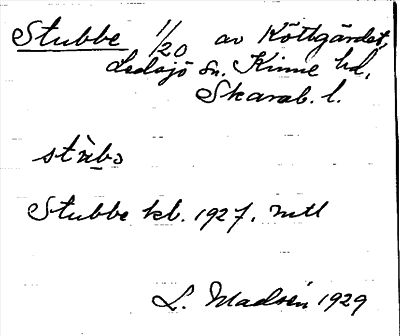 Stubbe 1/20 av Köttgärdet,
Ledsjö sn. Kinne hd,
Skarab. l.
stùbə
Stubbe kb. 1927. mtl
L. Madsén 1929